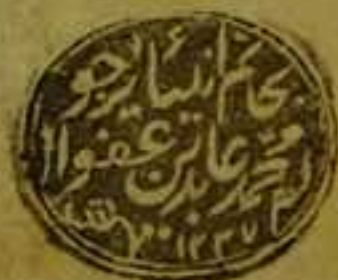 بخاتم انبيا يرجو
محمد عابدين عفوا
١٢٣٧